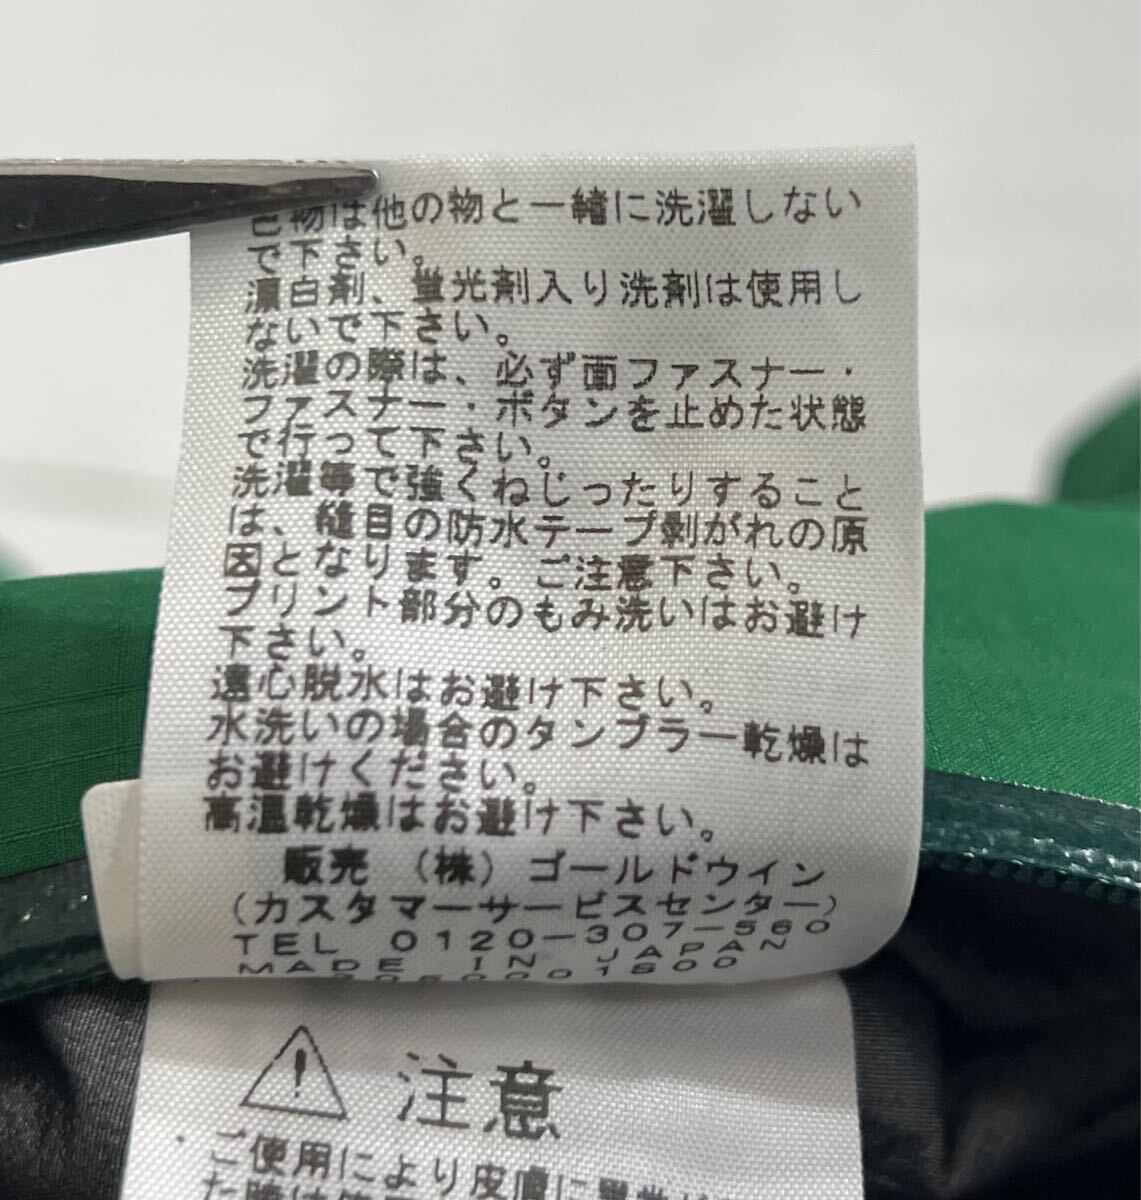 色物は他の物と一緒に洗濯しない
で下さい。
漂白剤、蛍光剤入り洗剤は使用し
ないで下さい。
洗濯の際は、必ず面ファスナー・
ファスナー・ボタンを止めた状態
で行って下さい。
洗濯等で強くねじったりすること
は、縫目の防水テープ剥がれの原
因となります。ご注意下さい。
プリント部分のもみ洗いはお避け
下さい。
遠心脱水はお避け下さい。
水洗いの場合のタンブラー乾燥は
お避けください。
高温乾燥はお避け下さい。
販売 (株)ゴールドウイン
(カスタマーサービスセンター)
TEL 0120-307-560
MADE IN JAPAN
注意
・ご使用により皮膚に異常が